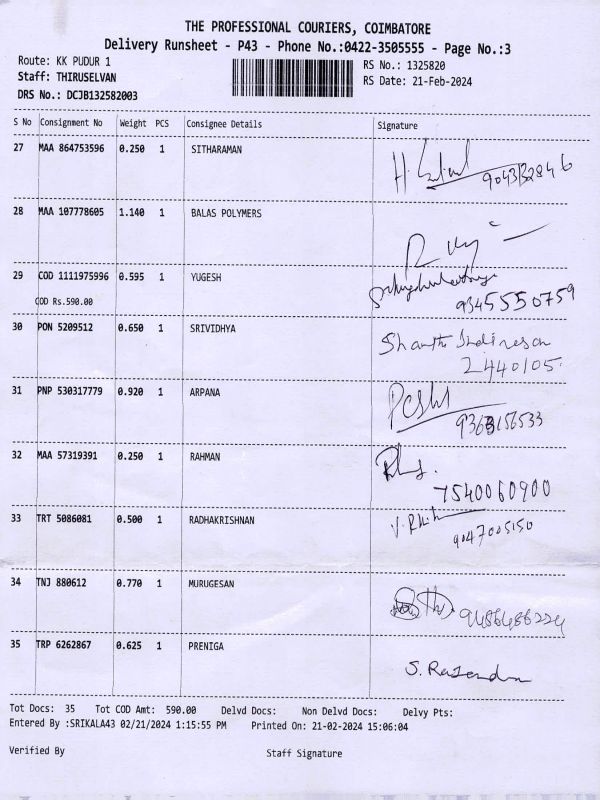 THE PROFESSIONAL COURIERS, COIMBATORE
Delivery Runsheet - P43 - Phone No.:0422-3505555 - Page No.:3
Route: KK PUDUR 1 RS No.: 1325820
Staff: THIRUSELVAN RS Date: 21-Feb-2024
DRS No.: DCJB132582003
S No Consignment No Weight PCS Consignee Details Signature
27 MAA 864753596 0.250 1 SITHARAMAN
28 MAA 107778605 1.140 1 BALAS POLYMERS
29 COD 1111975996 0.595 1 YUGESH
COD Rs.590.00 9345550759
30 PON 5209512 0.650 1 SRIVIDHYA Shanthi Indiresan
2440105.
31 PNP 530317779 0.920 1 ARPANA
32 MAA 57319391 0.250 1 RAHMAN
7540060900
33 TRT 5086081 0.500 1 RADHAKRISHNAN
9047005150
34 TNJ 880612 0.770 1 MURUGESAN
9486486224
35 TRP 6262867 0.625 1 PRENIGA
S. Rajendra
Tot Docs: 35 Tot COD Amt: 590.00 Delvd Docs: Non Delvd Docs: Delvy Pts:
Entered By :SRIKALA43 02/21/2024 1:15:55 PM Printed On: 21-02-2024 15:06:04
Verified By Staff Signature